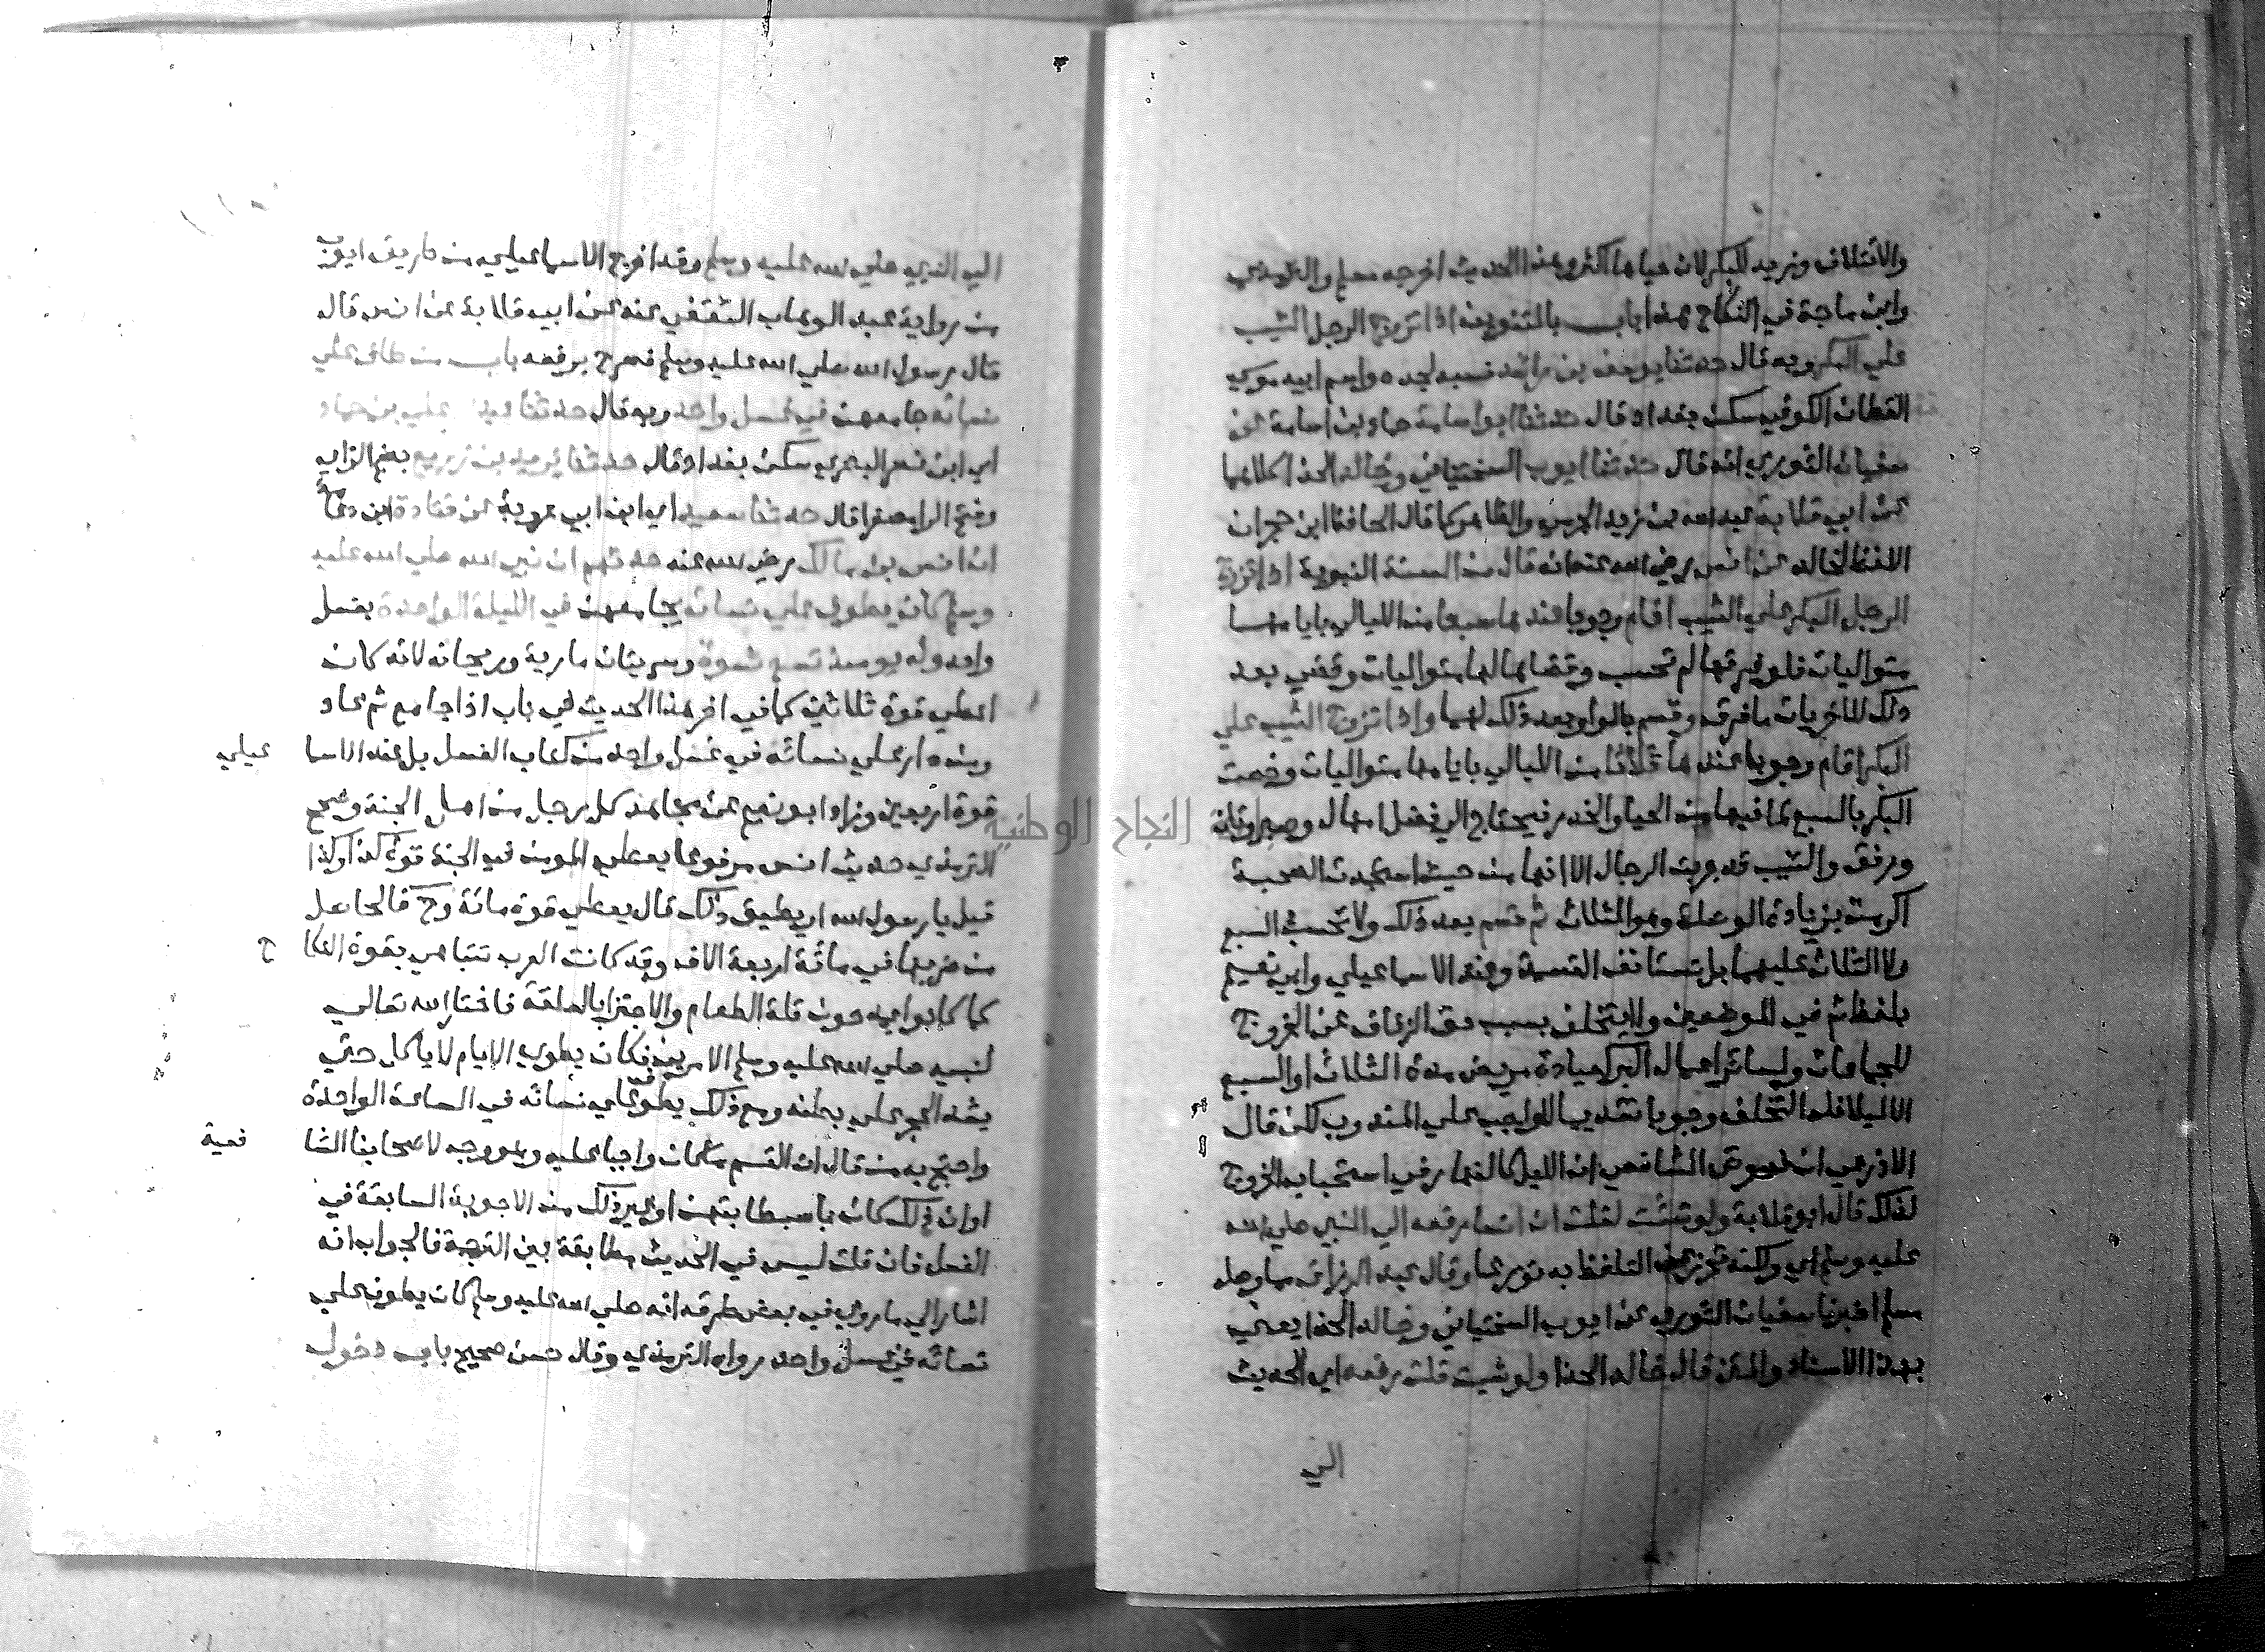 والائتلاف وزيد للبكر لان حياها اكثر وهذا الحديث اخرجه مسلم والترمذي
وابن ماجة في النكاح هذا باب بالتنوين اذا تزوج الرجل الثيب
علي البكر وبه قال حدثنا يوسف بن راشد نسبه لجده واسم ابيه موسي
القطان الكوفي سكن بغداد قال حدثنا ابو اسامة حماد بن اسامة عن
سفيان الثوري انه قال حدثنا ايوب السختياني وخالد الحذا كلاهما
عن ابي قلابة عبد الله بن زيد الجرمي والظاهر كما قال الحافظ ابن حجر ان
اللفظ لخالد عن انس رضي الله عنه انه قال من السنة النبوية اذا تزوج
الرجل البكر علي الثيب اقام وجوبا عندها سبعا من الليالي بايامها
متواليات فلو فرقها لم تحسب وقضاها لها متواليات وقضي بعد
ذلك للاخريات ما فرق وقسم بالواو بعد ذلك لهما واذا تزوج الثيب علي
البكر اقام وجوبا عندها ثلاثا من الليالي بايامها متواليات وخصت
البكر بالسبع لما فيها من الحيا والخدر فيحتاج الي فضل امهال وصبر وتان
ورفق والثيب قد جربت الرجال الا انها من حيث استجدت الصحبة
اكرمت بزيادة الوصلة وهو الثلاث ثم قسم بعد ذلك ولا تحسب السبع
ولا الثلاث عليهما بل تستانف القسمة وعند الاسماعيلي وابي نعيم
بلفظ ثم في الموضعين ولا يتخلف بسبب حق الزفاف عن الخروج
للجماعات ولسائر اعمال البر كعيادة مريض مدة الثلاث او السبع
الا ليلا فله التخلف وجوبا تقديما للواجب علي المندوب لكن قال
الاذرعي ان نصوص الشافعي ان الليل كالنهار في استحباب الخروج
لذلك قال ابو قلابة ولو شئت لقلت ان انسا رفعه الي النبي صلي الله
عليه وسلم اي ولكنه تحرز عن التلفظ به تورعا وقال عبد الرزاق مما وصله
مسلم اخبرنا سفيان الثوري عن ايوب السختياني وخالد الحذا يعني
بهذا الاسناد والمتن قال خالد الحذا ولو شيت قلت رفعه اي الحديث
الي
الي النبي صلي الله عليه وسلم وقد اخرج الاسماعيلي من طريق ايوب
من رواية عبد الوهاب الثقفي عنه عن ابيه قلابة عن انس قال
قال رسول الله صلي الله عليه وسلم فصرح برفعه باب من طاف علي
نسائه جامعهن في غسل واحد وبه قال حدثنا عبد الاعلي بن حماد
اي ابن نصر البصري سكن بغداد قال حدثنا يزيد بن زريع بضم الزاي
وفتح الرا مصغرا قال حدثنا سعيد اي ابن ابي عروبة عن قتادة ابن دعامة
ان انس بن مالك رضي الله عنه حدثهم ان نبي الله صلي الله عليه
وسلم كان يطوف علي نسائه يجامعهن في الليلة الواحدة بغسل
واحد وله يومئذ تسع نسوة وسريتان مارية وريحانه لانه كان
اعطي قوة ثلاثين كما في اخر هذا الحديث في باب اذا جامع ثم عاد
ومن دار علي نسائه في غسل واحد من كتاب الغسل بل عند الاسما عيلي
قوة اربعين وزاد ابو نعيم عن مجاهد كل رجل من اهل الجنة وصحح
الترمذي حديث انس مرفوعا يعطي المومن في الجنة قوة كذا وكذا
قيل يا رسول الله او يطيق ذلك قال يعطي قوة مائة وح فالحاصل
من ضربها في مائة اربعة الاف وقد كانت العرب تتباهي بقوة النكا ح
كما كانوا يمدحون قلة الطعام والاجتزا بالعلقة فاختار الله تعالي
لنبيه صلي الله عليه وسلم الامرين فكان يطوي الايام لا ياكل حتي
يشد الحجر علي بطنه ومع ذلك يطوف علي نسائه في الساعة الواحدة
واحتج به من قال ان القسم ما كان واجبا عليه وهو وجه لاصحابنا الشا فعية
او ان ذلك كان باستطابتهن او غير ذلك من الاجوبة السابقة في
الغسل فان قلت ليس في الحديث مطابقة بين الترجمة فالجواب انه
اشار الي ما روي في بعض طرقه انه صلي الله عليه وسلم كان يطوف علي
نسائه في غسل واحد رواه الترمذي وقال حسن صحيح باب دخول